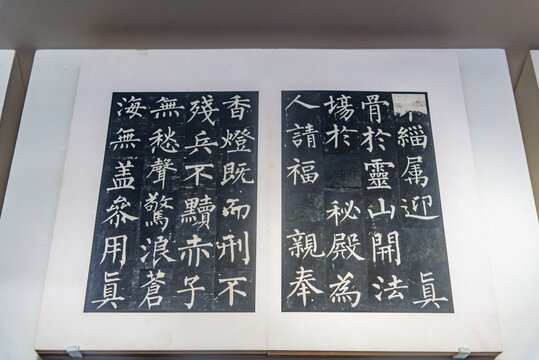 緇属迎 眞
骨於靈山開法
場於 秘殿為
人請福 親奉
香燈既而刑不
殘兵不黷赤子
無愁聲驚浪蒼
海無盖叅用眞